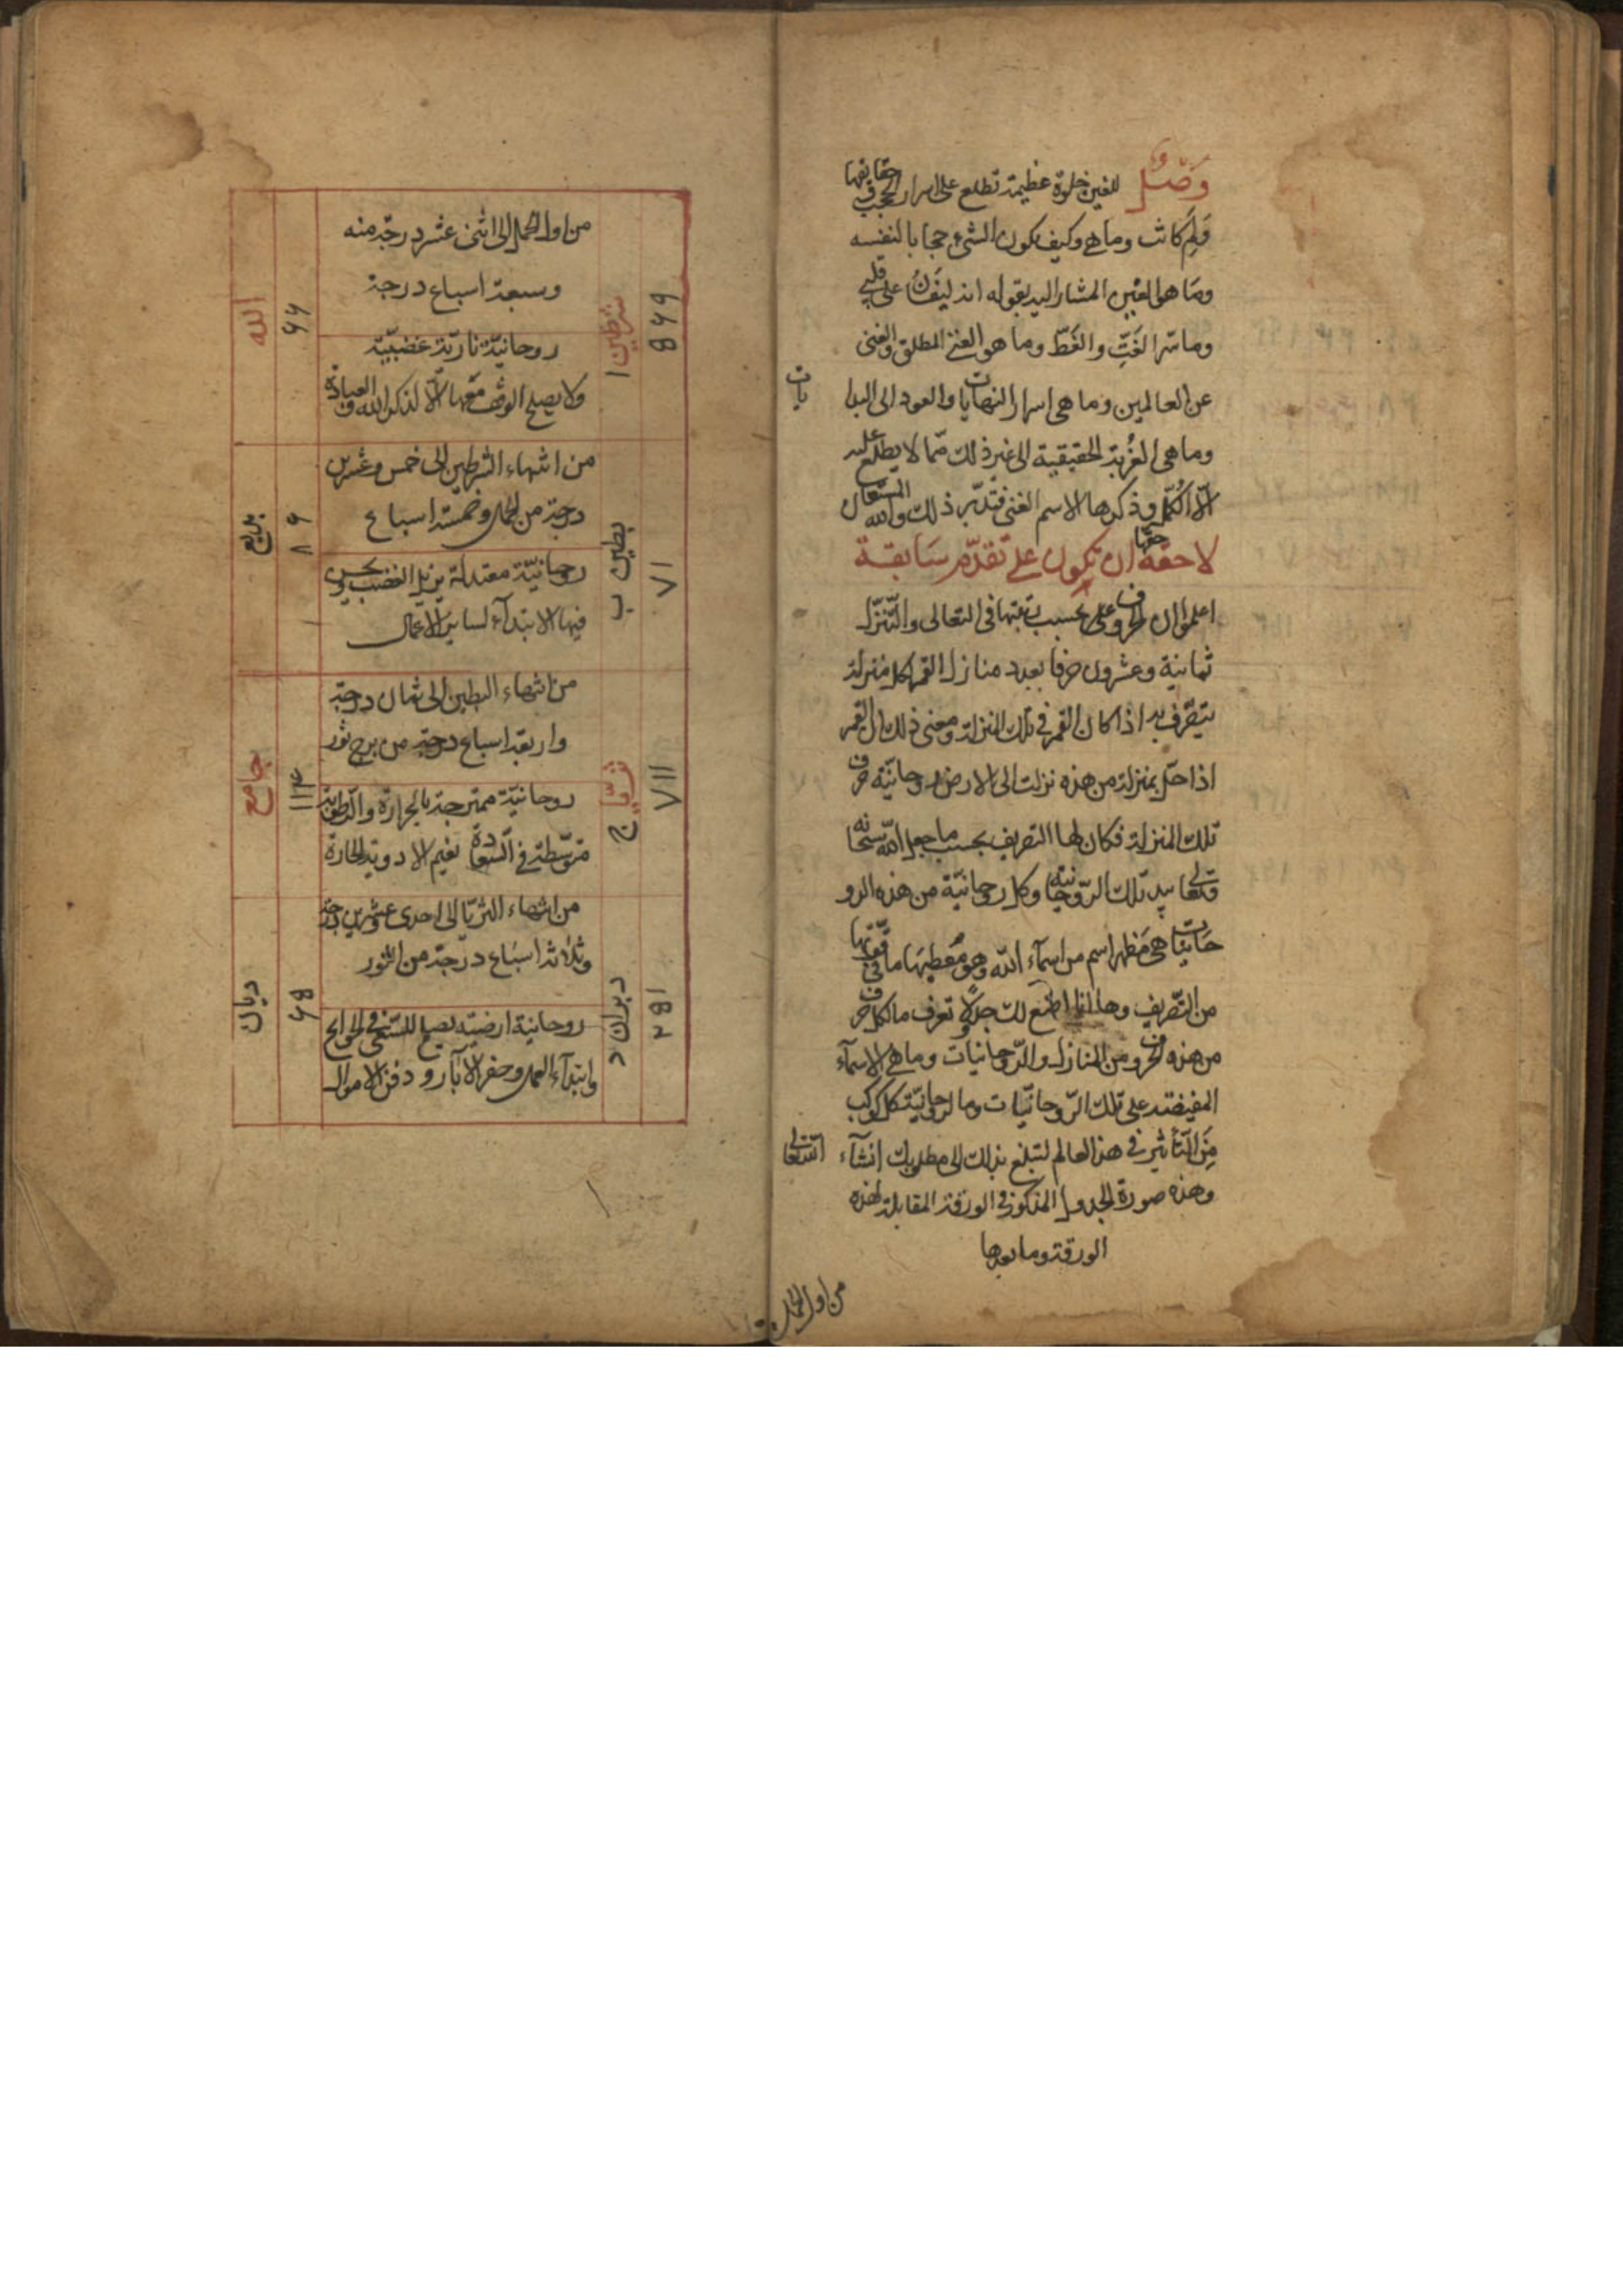 وصل للغين خلوة عظيمة تطلع على اسرار الحجب وحقايقها
ولم كانت وما هي وكيف يكون الشيء حجابا لنفسه
وما هو الغين المشار اليه بقوله انه ليغان على قلبي
وما سر الغت والغط وما هو الغنى المطلق والغنى
عن العالمين وما هي اسرار النهايات والعود الى البدايات
وما هي الغربة الحقيقية الى غير ذلك مما لا يطلع عليه
الا الكمل وذكرها الاسم الغني فتدبر ذلك والله المستعان
لاحقة حقها ان تكون على تقدم سابقة
اعلموا ان الحروف على بحسب رتبتها في التعالى والتنزل
ثمانية وعشرون حرفا بعدد منازل القمر لكل منزلة
يتصرف به اذا كان القمر في تلك المنزلة ومعنى ذلك ان القمر
اذا حل بمنزلة من هذه نزلت الى الارض روحانية حرف
تلك المنزلة فكان لها التصريف بحسب ما جعل الله سبحانه
وتعالى بيد تلك الروحانية وكل روحانية من هذه الرو
حانيات هي مظهر اسم من اسماء الله وهو معطيها ما في قوتها
من التصريف وها انا اضع لك جدولا تعرف ما لكل حرف
من هذه الحروف من المنازل والروحانيات وما هي الاسماء
المفيضة على تلك الروحانيات وما لروحانية كل كوكب
من التأثير في هذ العالم لتبلغ بذلك الى مطلوبك انشآء الله تعالى
وهذه صورة الجدول المذكور في الورقة المقابلة لهذه
الورقة وما بعدها
من اول الحمل
٥٤٩
شرطين ا
من اول الحمل الى اثنى عشر درجة منه
وسبعة اسباع درجة
روحانية نارية غضبية
ولا يصلح الوقت معها الا لذكر الله والعبادة
٦٦
الله
٧١
بطين ب
من انتهاء الشرطين الى خمس وعشرين
درجة من الحمل وخمسة اسباع
روحانية معتدلة يزيل الغضب ويحسن
فيها الابتدآء لساير الاعمال
٨٦
بديع
٧١١
ثريا ج
من انتهاء البطين الى ثمان درجة
واربعة اسباع درجة من برج ثور
روحانية ممتزجة بالحرارة والرطوبة
متوسطة في السعادة تقيم الادوية الحارة
١١٤
جامع
٢٥١
دبران د
من انتهاء الثريا الى احدى وعشرين درجة
وثلاثة اسباع درجة من الثور
روحانية ارضية يصلح للسعي في الحوائج
وابتدآء العمل وحفر الآبار ودفن الاموال
٦٥
ديان